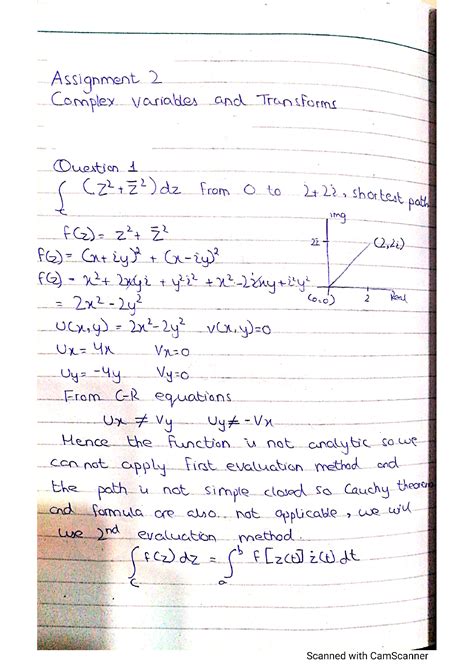 Assignment 2
Complex variables and Transforms
Question 1
∫c (z²+z̄²)dz from 0 to 2+2i, shortest path
f(z) = z²+ z̄²
f(z) = (x+iy)² + (x-iy)²
f(z) = x²+ 2xyi + y²i² + x²-2ixy+i²y²
= 2x²-2y²
img
2i
(2,2i)
(0,0)
2
Real
U(x,y) = 2x²-2y² v(x,y)=0
Ux = 4x Vx=0
Uy= -4y Vy=0
From C-R equations
Ux ≠ Vy Uy≠ -Vx
Hence the function is not analytic so we
can not apply first evaluation method and
the path is not simple closed so Cauchy theorem
and formula are also not applicable, we will
use 2nd evaluation method.
∫c f(z)dz = ∫a^b f[z(t)] ż(t)dt
Scanned with CamScanner